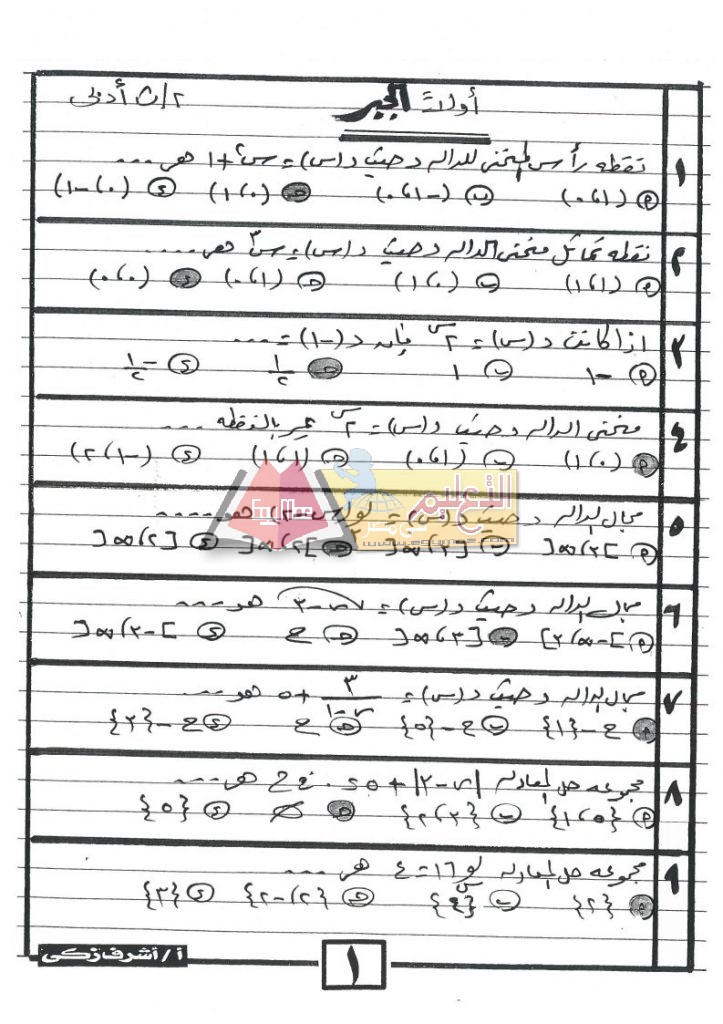 أولاً الجبر ٢/ث أدبى
١ نقطه رأس المنحنى للداله د حيث د(س) = س٢ + ١ هى ....
أ (١، ٠) ب (-١، ٠) ج (٠، ١) د (٠، -١)
٢ نقطه تماثل منحنى الداله د حيث د(س) = س٣ هى ....
أ (١، ١) ب (٠، ١) ج (١، ٠) د (٠، ٠)
٣ اذا كانت د(س) = ٢س فإن د(-١) = ....
أ -١ ب ١ ج ١/٢ د -١/٢
٤ منحنى الداله د حيث د(س) = ٢س يمر بالنقطه ....
أ (٠، ١) ب (١، ٠) ج (١، ١) د (-١، ٢)
٥ مجال الداله د حيث د(س) = لو(س-٢) هو ....
أ ]٢، ∞[ ب [٢، ∞[ ج ]٢، ∞[ د [٢، ∞[
٦ مجال الداله د حيث د(س) = √س-٣ هو ....
أ ]-∞، ٣[ ب [٣، ∞[ ج ح د ]-٣، ∞[
٧ مجال الداله د حيث د(س) = ٣/س-١ + ٥ هو ....
أ ح - {١} ب ح - {٥} ج ح د ح - {٣}
٨ مجموعه حل المعادله |س-٢| + ٥ = ٠ فى ح هى ....
أ {١، ٥} ب {٢، ٣} ج ∅ د {٥}
٩ مجموعه حل المعادله لوس ١٦ = ٤ هى ....
أ {٢} ب {٤} ج {٢، -٢} د {٣}
التعليم
فى مصر
www.egymoe.com
أ/ أشرف زكى
١